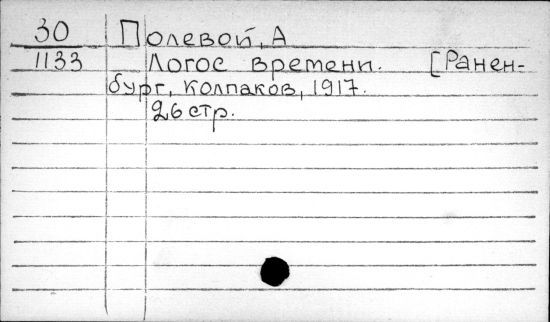 30 Полевой, А
1133 Логос времени. [Ранен-
бург, Колпаков, 1917.
26 стр.